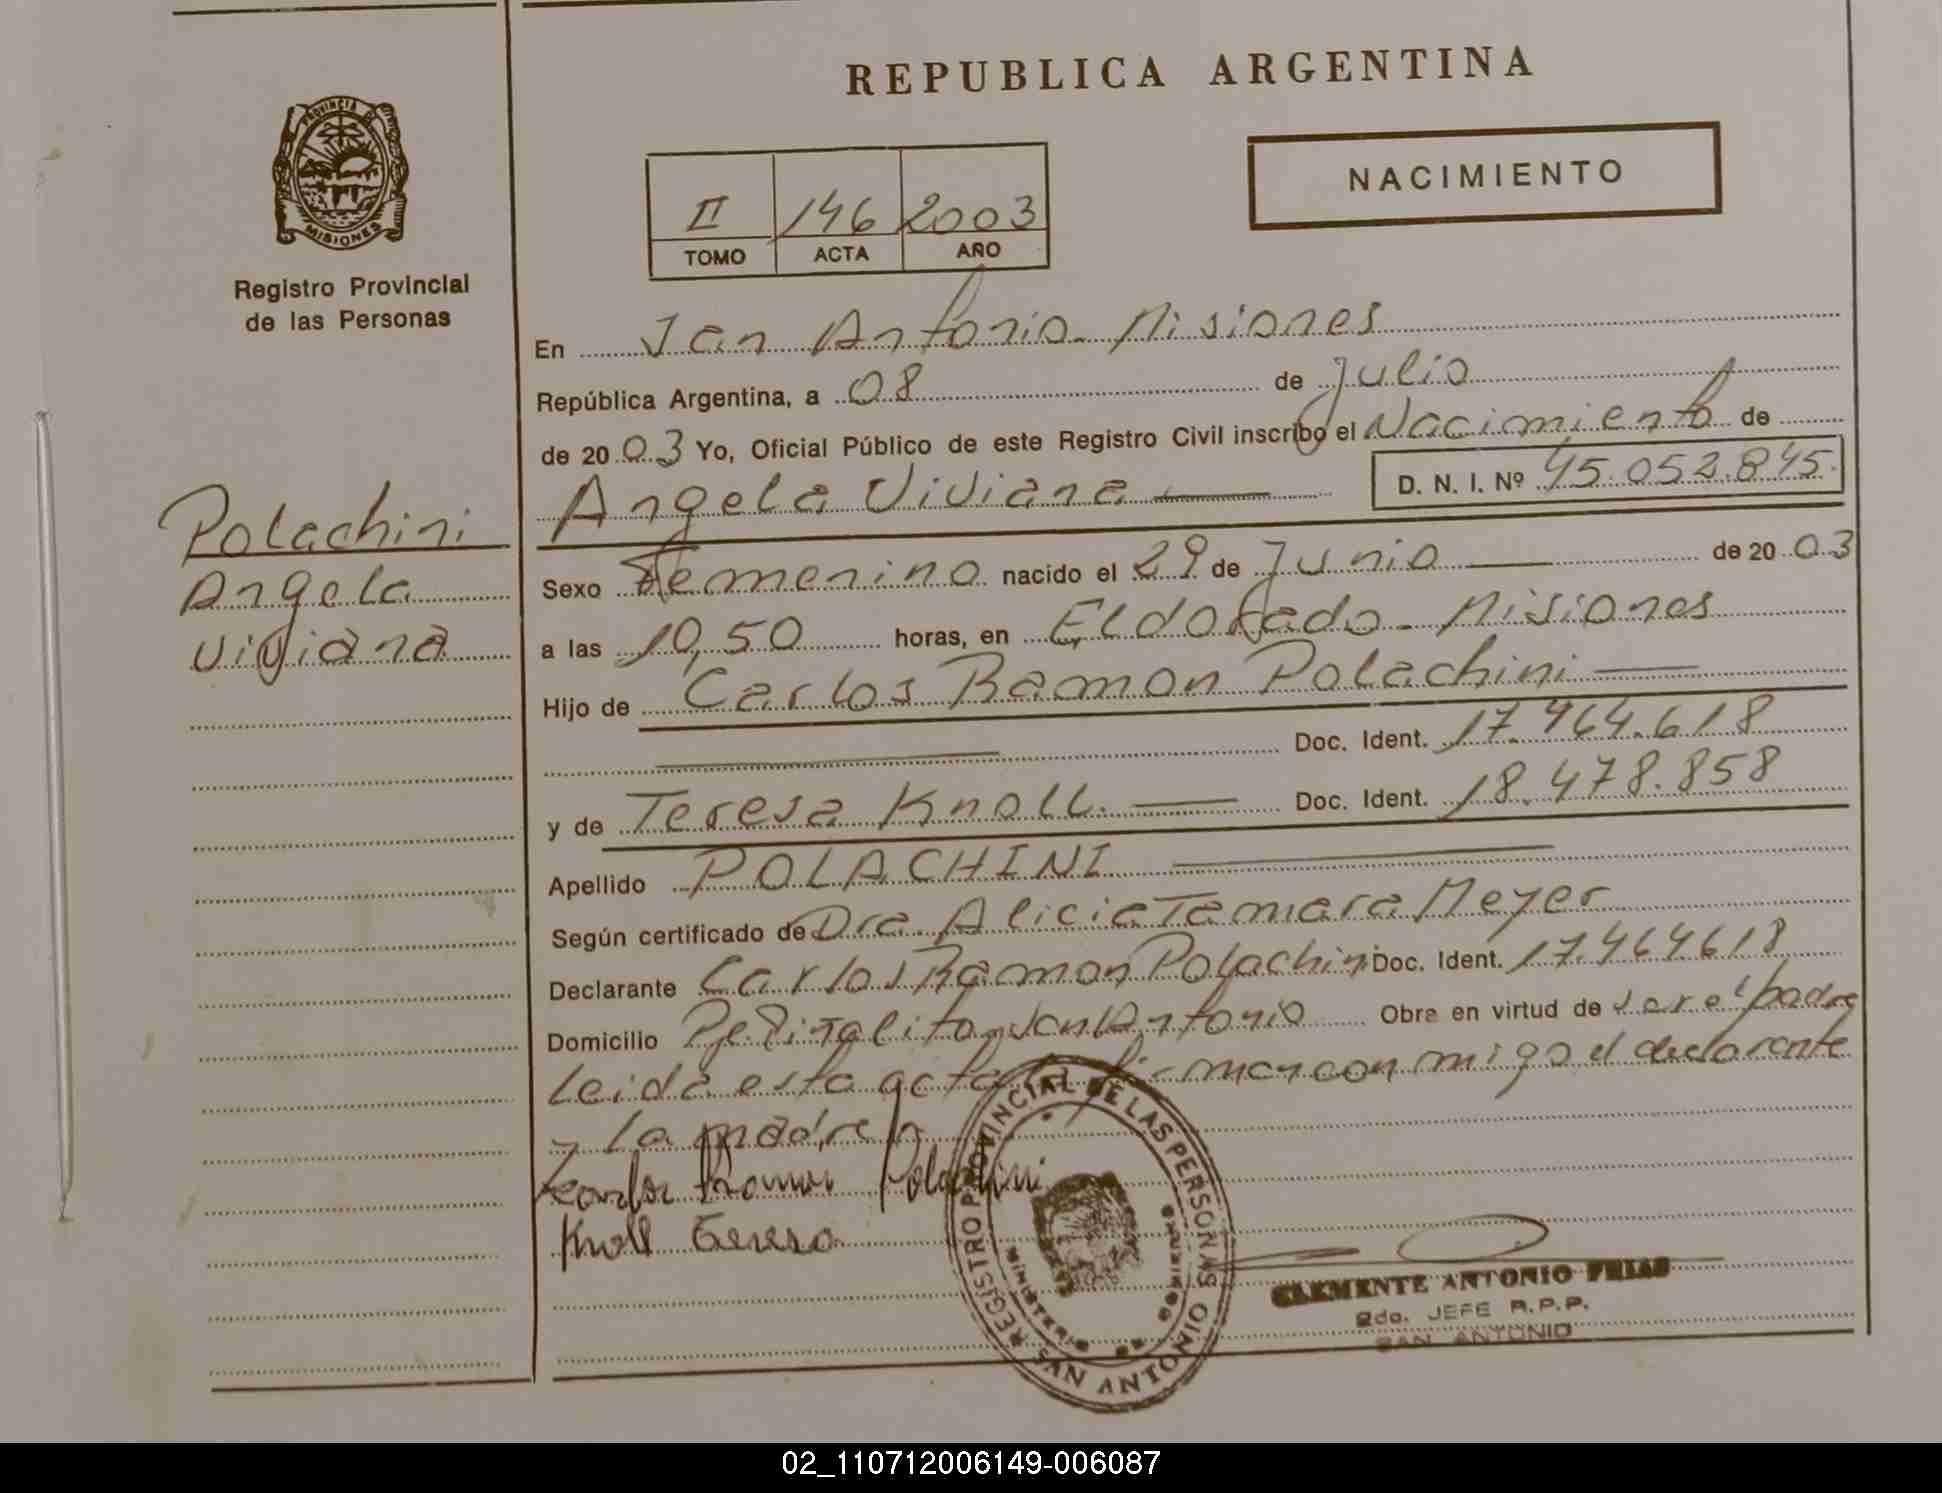 REPUBLICA ARGENTINA
PROVINCIA DE
MISIONES
Registro Provincial
de las Personas
NACIMIENTO
II 146 2003
TOMO ACTA AÑO
En San Antonio - Misiones
República Argentina, a 08 de Julio
de 2003 Yo, Oficial Público de este Registro Civil inscribo el Nacimiento de
Angela Viviana D. N. I. Nº 45.052.845.
Polachini
Angela
Viviana
Sexo Femenino nacido el 29 de Junio de 2003
a las 10,50 horas, en Eldorado - Misiones
Hijo de Carlos Ramon Polachini
Doc. Ident. 17.464.618
y de Teresa Knoll. Doc. Ident. 18.478.858
Apellido POLACHINI
Según certificado de Dra. Alicia Tamara Meyer
Declarante Carlos Ramon Polachini Doc. Ident. 17.464618
Domicilio Pje. Piñalito - San Antonio Obra en virtud de ser el padre
Leida esta acta firman con migo el declarante
y la madre
Carlos Ramon Polachini
Knoll Teresa
REGISTRO PROVINCIAL DE LAS PERSONAS
SAN ANTONIO
CLEMENTE ANTONIO FRIAS
2do. JEFE R.P.P.
SAN ANTONIO
02_110712006149-006087